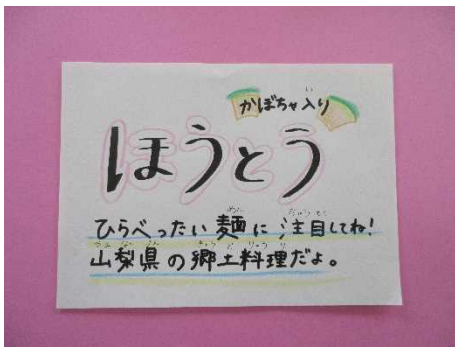 かぼちゃ入り
ほうとう
ひらべったい麺に注目してね!
山梨県の郷土料理だよ。